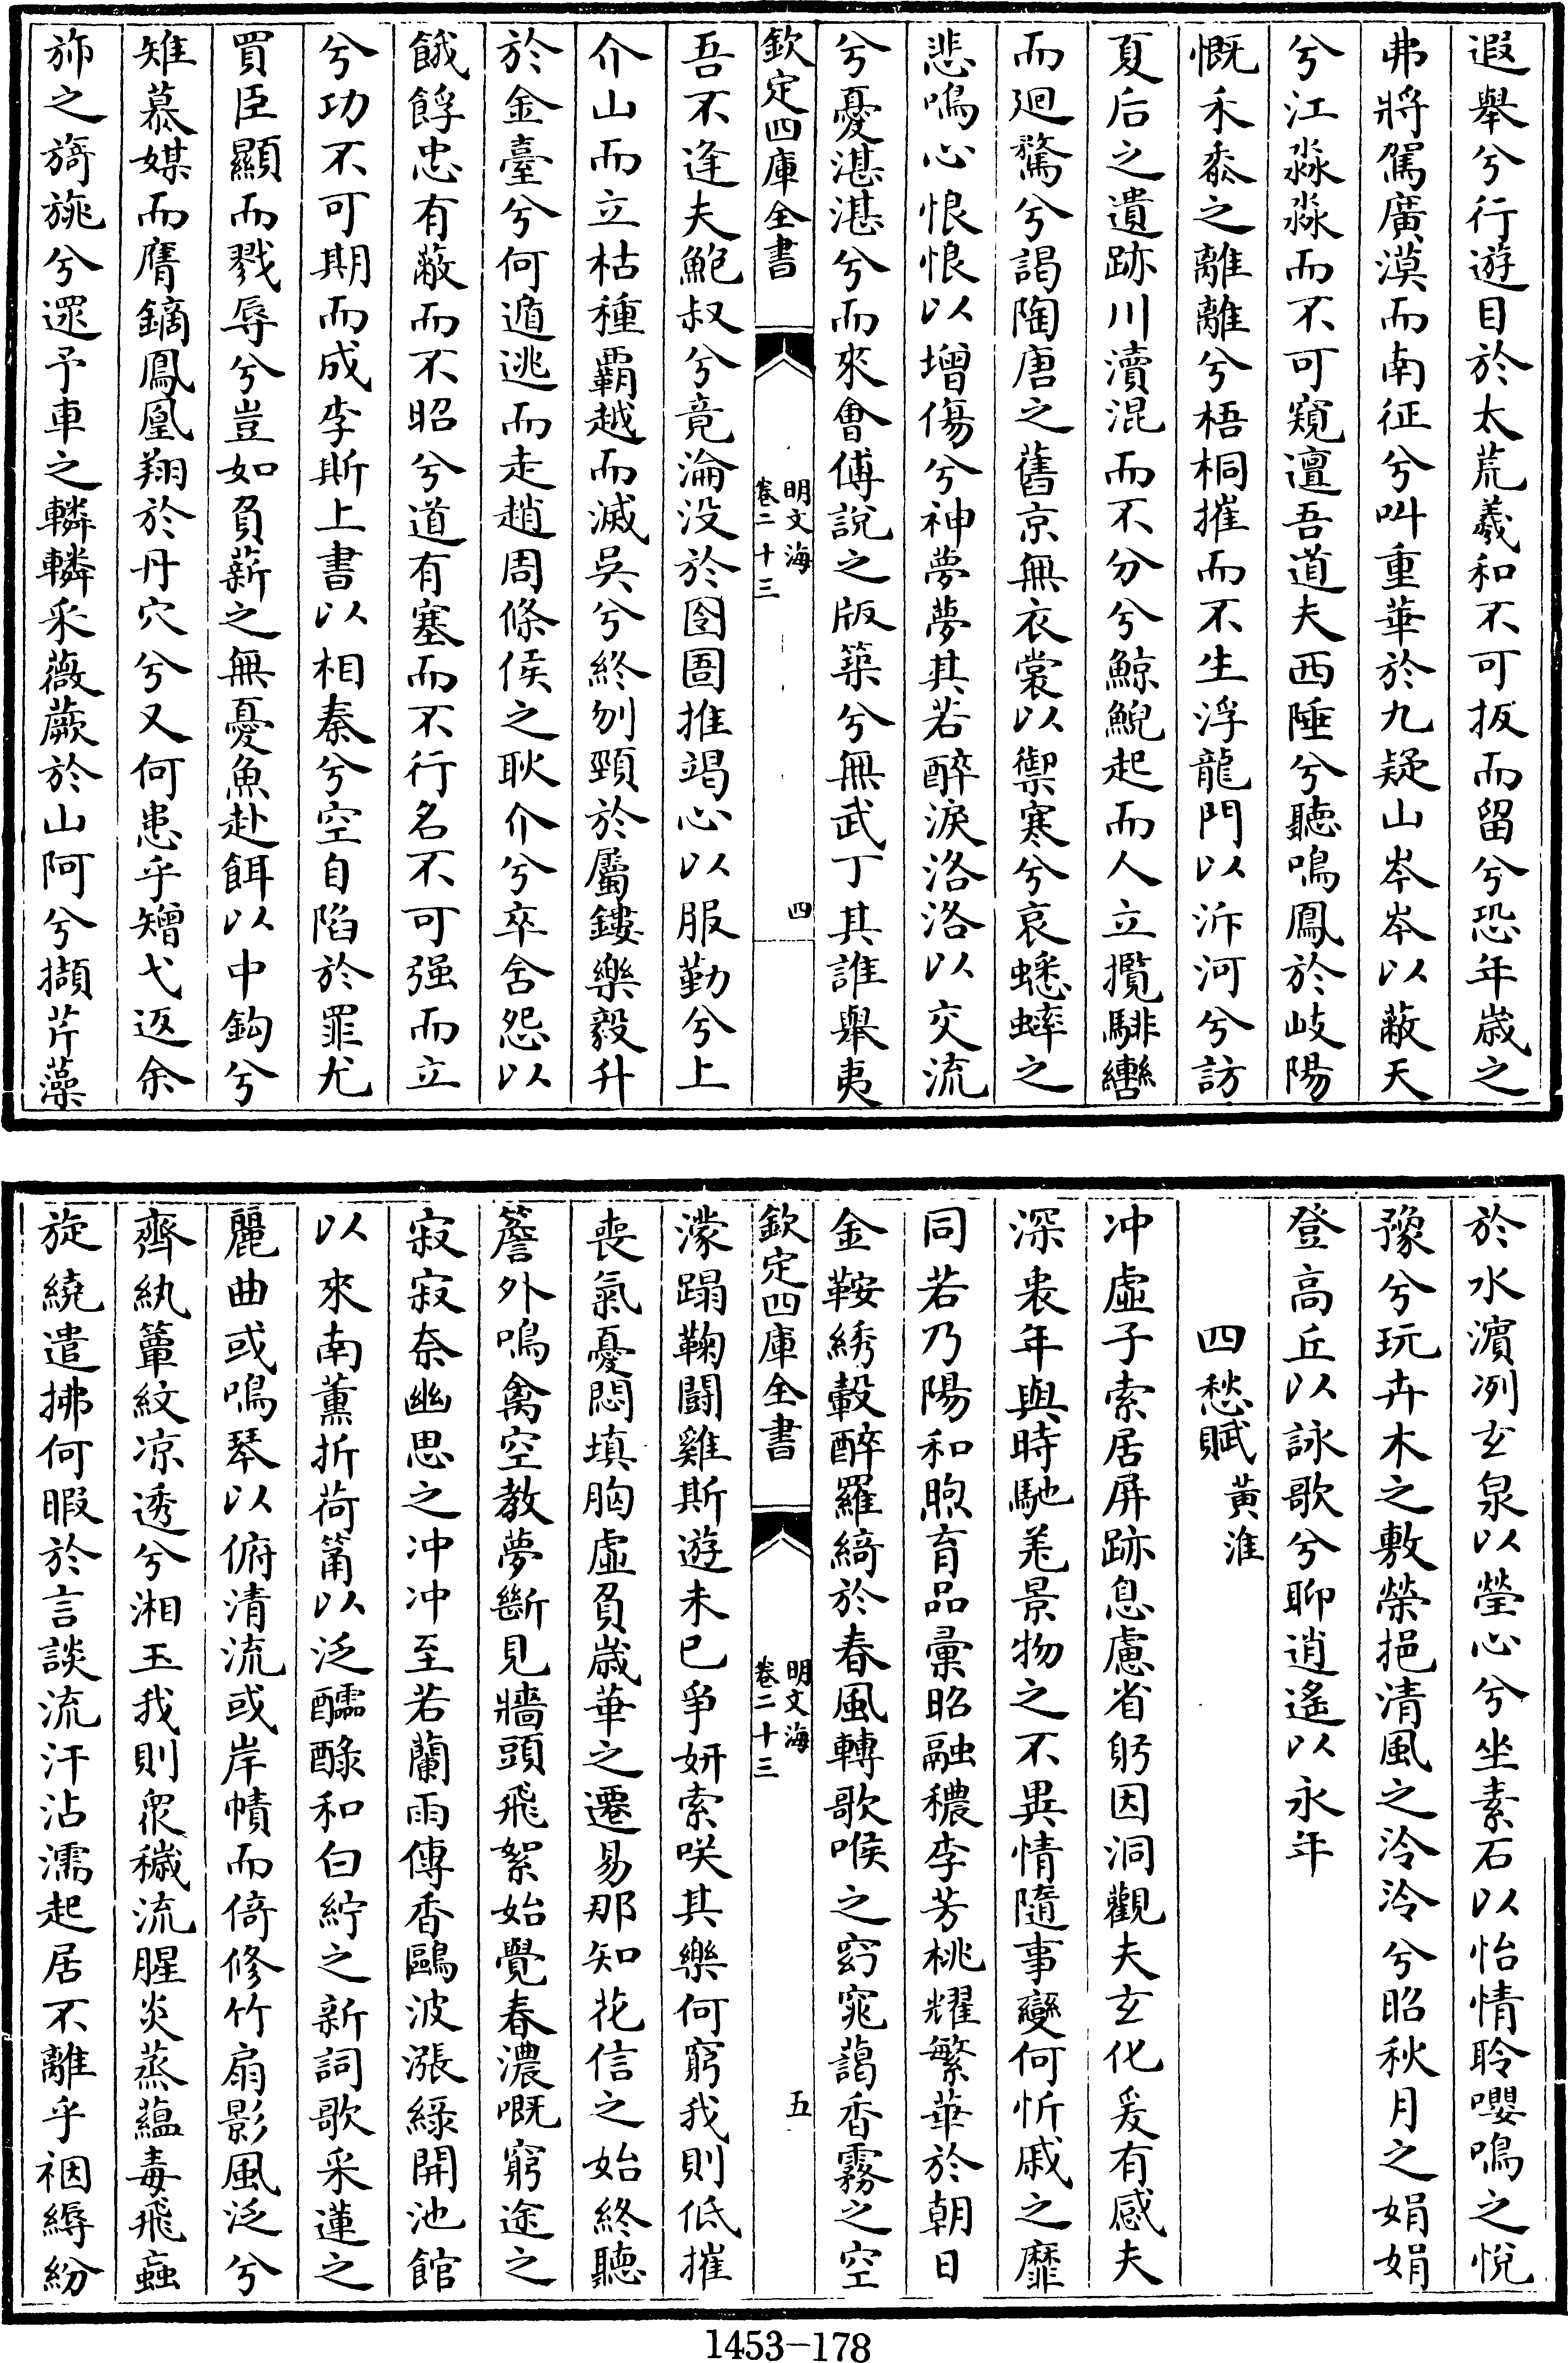 遐舉兮行遊目於太荒羲和不可扳而留兮恐年嵗之
弗將駕廣漠而南征兮叫重華於九疑山岑岑以蔽天
兮江淼淼而不可窺邅吾道夫西陲兮聽鳴鳳於岐陽
慨禾黍之離離兮梧桐摧而不生浮龍門以泝河兮訪
夏后之遺跡川瀆混而不分兮鯨鯢起而人立攬騑轡
而廻騖兮謁陶唐之舊京無衣裳以禦寒兮哀蟋蟀之
悲鳴心悢悢以增傷兮神夢夢其若醉淚洛洛以交流
兮憂湛湛兮而來會傅說之版築兮無武丁其誰舉夷
欽定四庫全書
明文海
卷二十三
四
吾不逢夫鮑叔兮竟淪没於囹圄推竭心以服勤兮上
介山而立枯種覇越而滅吳兮終刎頸於屬鏤樂毅升
於金臺兮何遁逃而走趙周條侯之耿介兮卒含怨以
餓殍忠有蔽而不昭兮道有塞而不行名不可强而立
兮功不可期而成李斯上書以相秦兮空自陷於罪尤
買臣顯而戮辱兮豈如負薪之無憂魚赴餌以中鈎兮
雉慕媒而膺鏑鳳凰翔於丹穴兮又何患乎矰弋返余
斾之旖旎兮還予車之轔轔采薇蕨於山阿兮擷芹藻
於水濵冽玄泉以瑩心兮坐素石以怡情聆嚶鳴之悅
豫兮玩卉木之敷榮挹清風之泠泠兮昭秋月之娟娟
登高丘以詠歌兮聊逍遙以永年
四愁賦 黄淮
冲虛子索居屏跡息慮省躬因洞觀夫玄化爰有感夫
深衷年與時馳羌景物之不異情隨事變何忻戚之靡
同若乃陽和煦育品彚昭融穠李芳桃耀繁華於朝日
金鞍綉轂醉羅綺於春風轉歌喉之窈窕藹香霧之空
欽定四庫全書
明文海
卷二十三
五
濛蹋鞠鬭雞斯遊未已爭妍索咲其樂何窮我則低摧
喪氣憂悶填胸虛負嵗華之遷易那知花信之始終聽
簷外鳴禽空教夢斷見牆頭飛絮始覺春濃嘅窮途之
寂寂奈幽思之冲冲至若蘭雨傳香鷗波漲緑開池館
以來南薫折荷筩以泛醽醁和白紵之新詞歌采蓮之
麗曲或鳴琴以俯清流或岸幘而倚修竹扇影風泛兮
齊紈簟紋凉透兮湘玉我則衆穢流腥炎蒸蘊毒飛蝱
旋繞遣拂何暇於言談流汗沾濡起居不離乎裀縟紛
1453-178